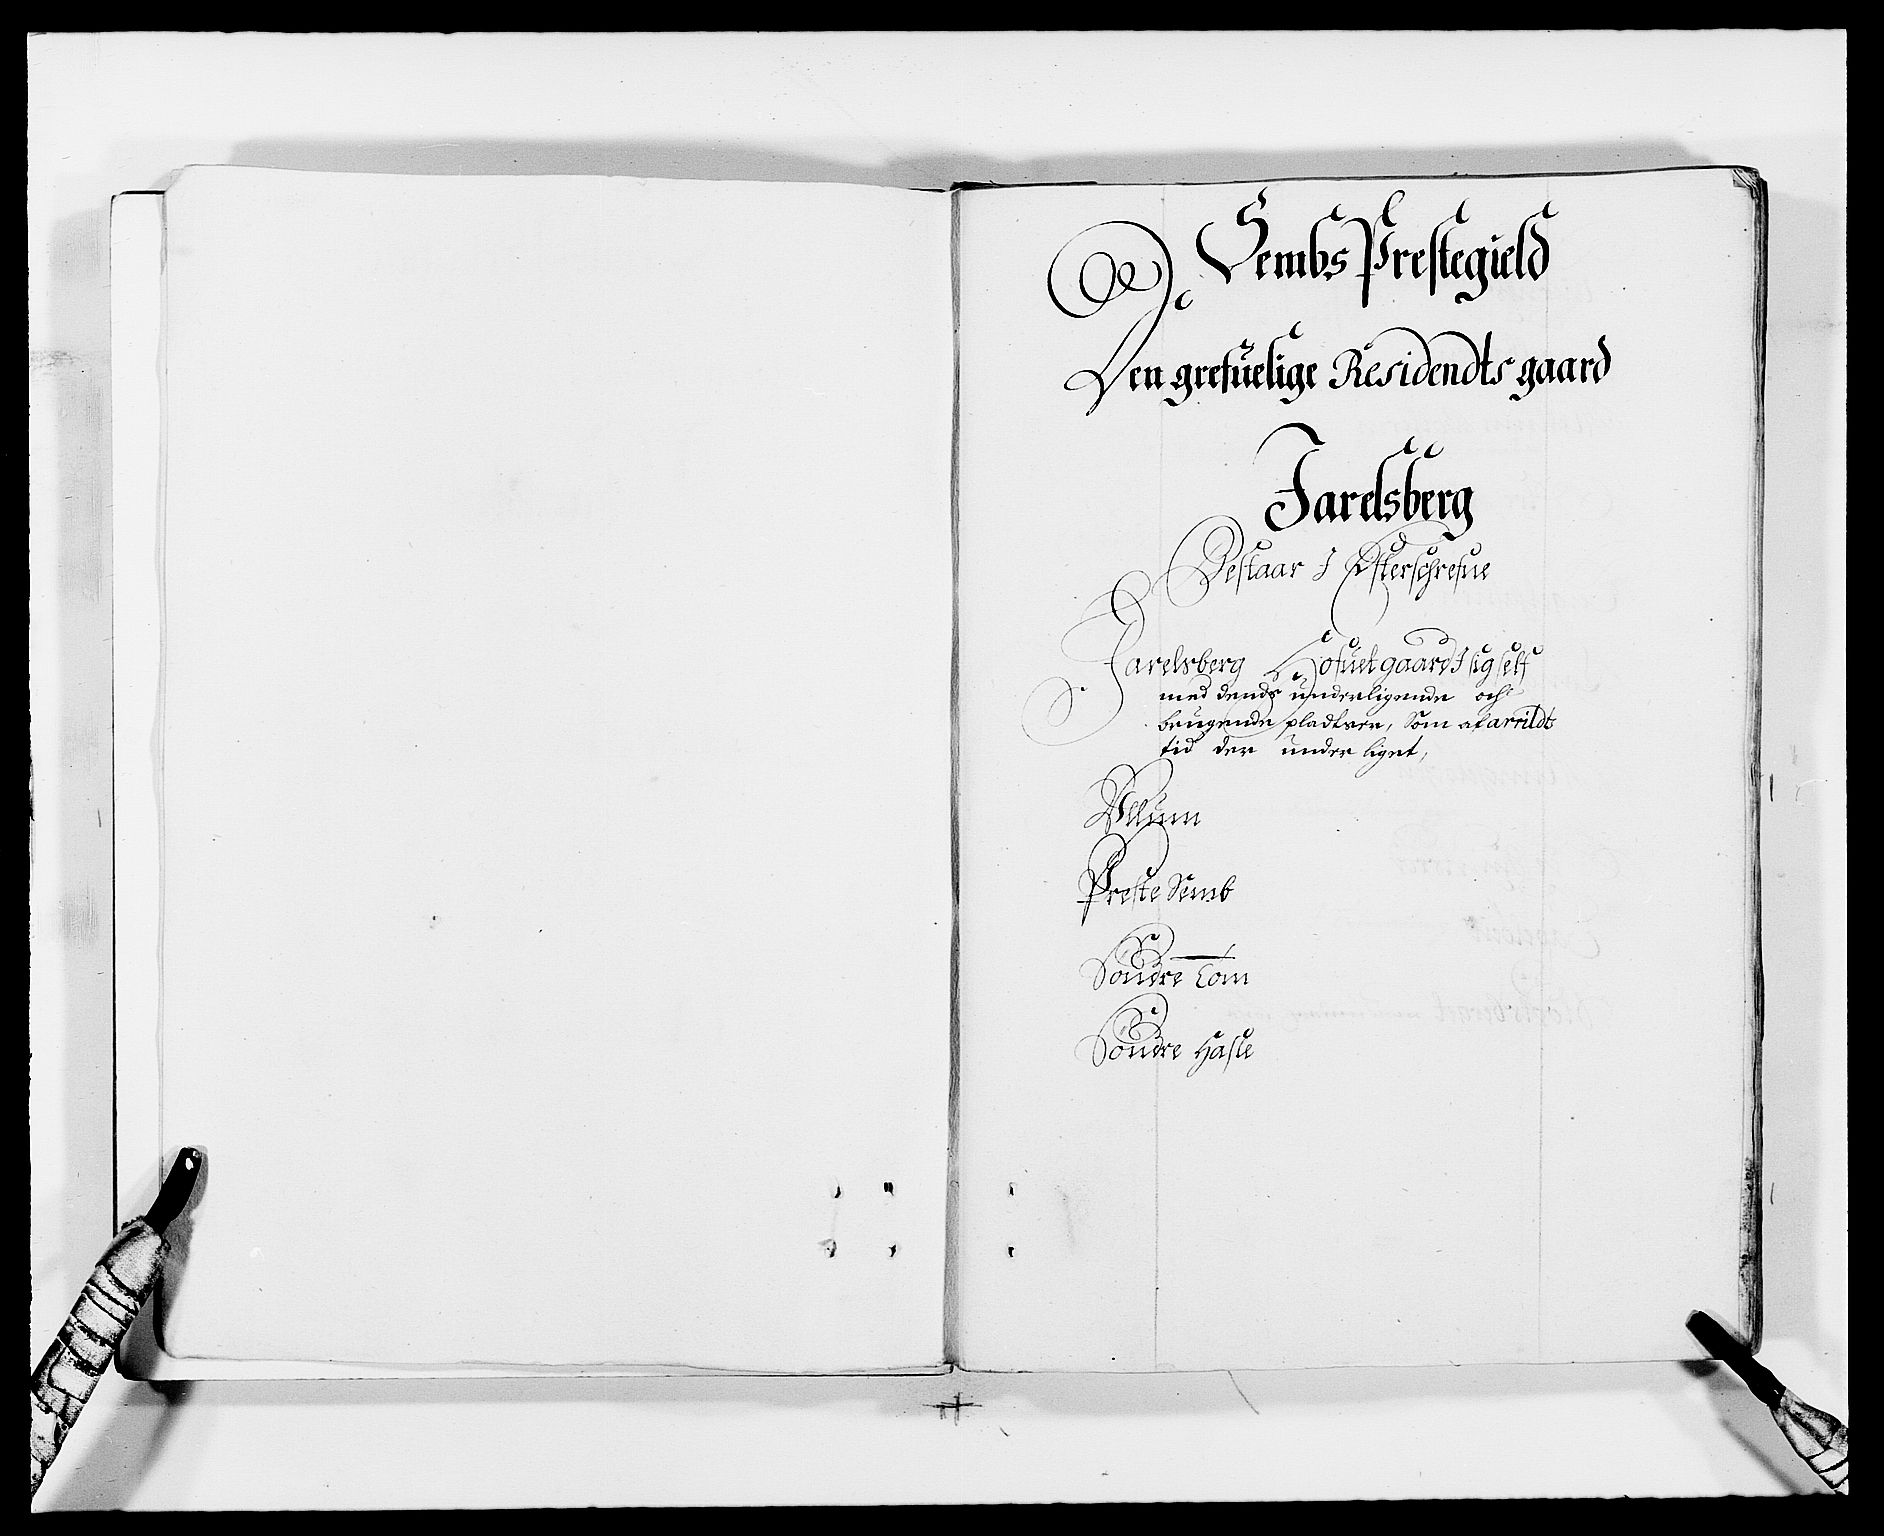 Sembs Prestegield
Den grefuelige Residendts gaard
Jarelsberg
Bestaar J Efterschrefue
Jarelsberg Hofuetgaard J sig self
med dends underligende och
brugende pladtser, Som af arrildt
tid der under liget,
Vllum
Preste Semb
Söndre Tom
Söndre Hasle